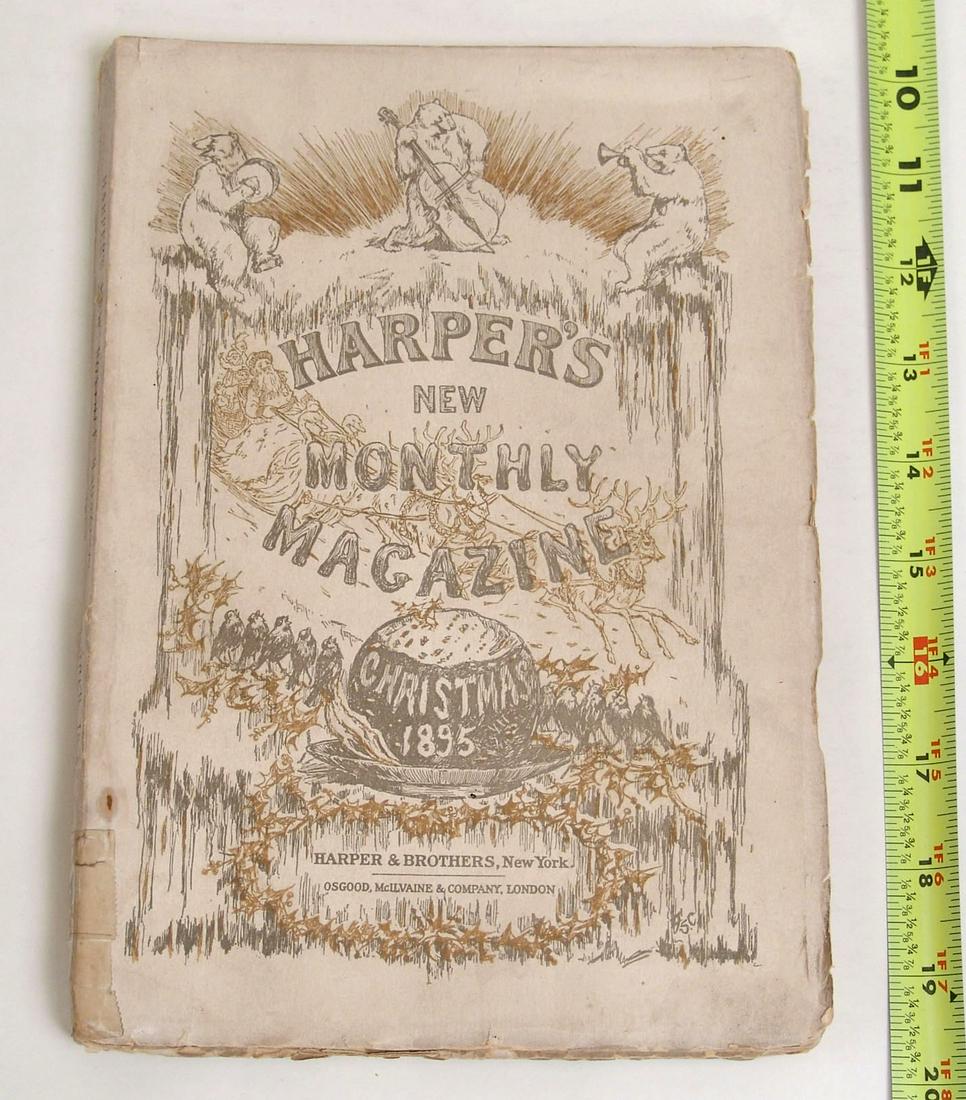 HARPER'S
NEW
MONTHLY
MAGAZINE
CHRISTMAS
1895
HARPER & BROTHERS, New York.
OSGOOD, McILVAINE & COMPANY, LONDON
10
11
1F
12
1F 1
13
1F 2
14
1F 3
15
1F 4
16
1F 5
17
1F 6
18
1F 7
19
1F 8
20